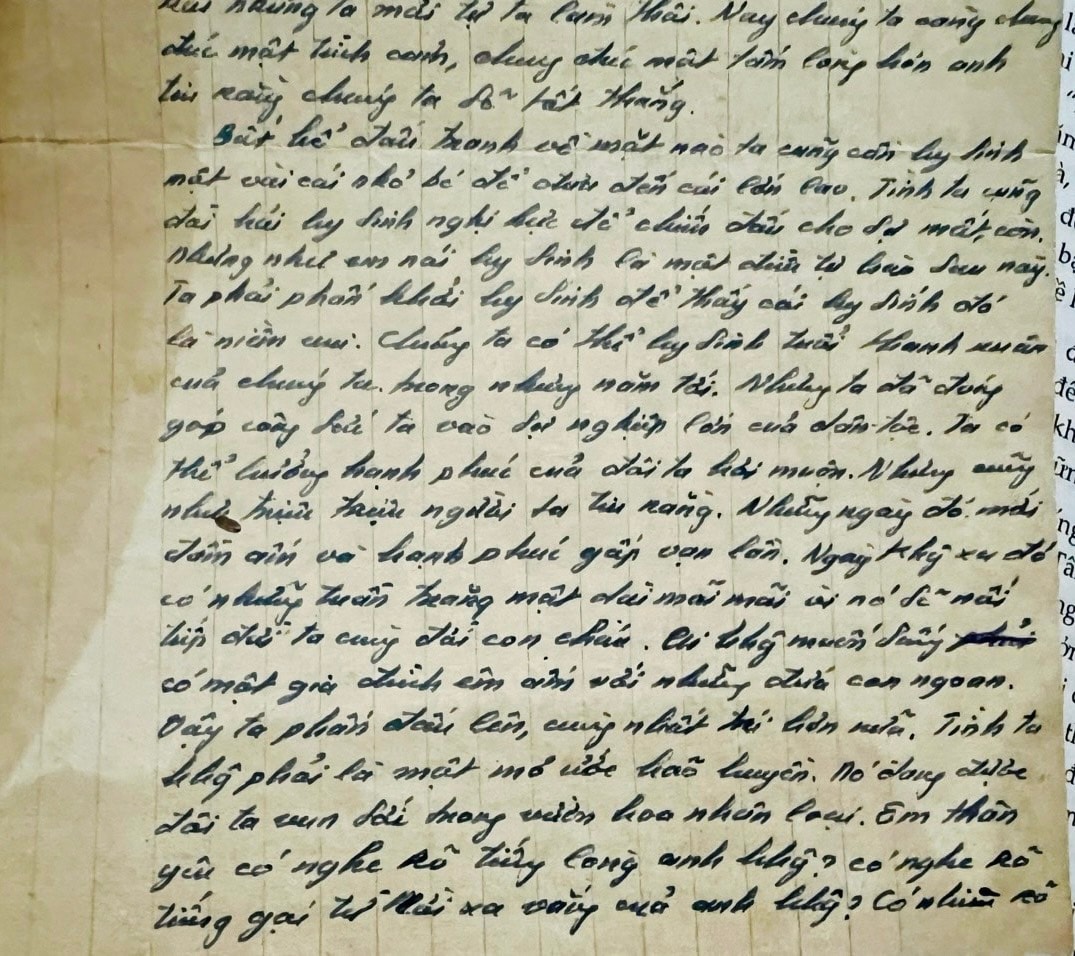 những ta mãi tự ta làm thôi. Nay chúng ta cùng chung
đúc một hình ảnh, chung đúc một tấm lòng hơn anh
tin rằng chúng ta sẽ tất thắng.
Bất kể đấu tranh về mặt nào ta cũng cần hy sinh
một vài cái nhỏ bé để đưa đến cái lớn lao. Tình ta cũng
đòi hỏi hy sinh nghị lực để chiến đấu cho sự mất, còn.
nhưng như em nói hy sinh là một điều tự hào sau này.
Ta phải phấn khởi hy sinh để thấy cái hy sinh đó
là niềm vui. Chúng ta có thể hy sinh tuổi thanh xuân
của chúng ta trong những năm tới. Nhưng ta đã đóng
góp công sức ta vào sự nghiệp lớn của dân-tộc. Ta có
thể hưởng hạnh phúc của đôi ta hơi muộn. Nhưng cũng
như triệu triệu người ta tin rằng. Những ngày đó mới
đầm ấm và hạnh phúc gấp vạn lần. Ngày khg xa đó
có những tuần trăng mật dài mãi mãi vì nó sẽ nối
tiếp đời ta cùng đời con cháu. Ai khg muốn sống
có một gia đình êm ấm với những đứa con ngoan.
Vậy ta phấn đấu lên, cùng nhất trí hơn nữa. Tình ta
khg phải là một mơ ước hão huyền. Nó đang được
đôi ta vun sới trong vườn hoa nhân loại. Em thân
yêu có nghe rõ tiếng lòng anh khg? có nghe rõ
tiếng gọi từ nơi xa vắng của anh khg? Có nhìn rõ